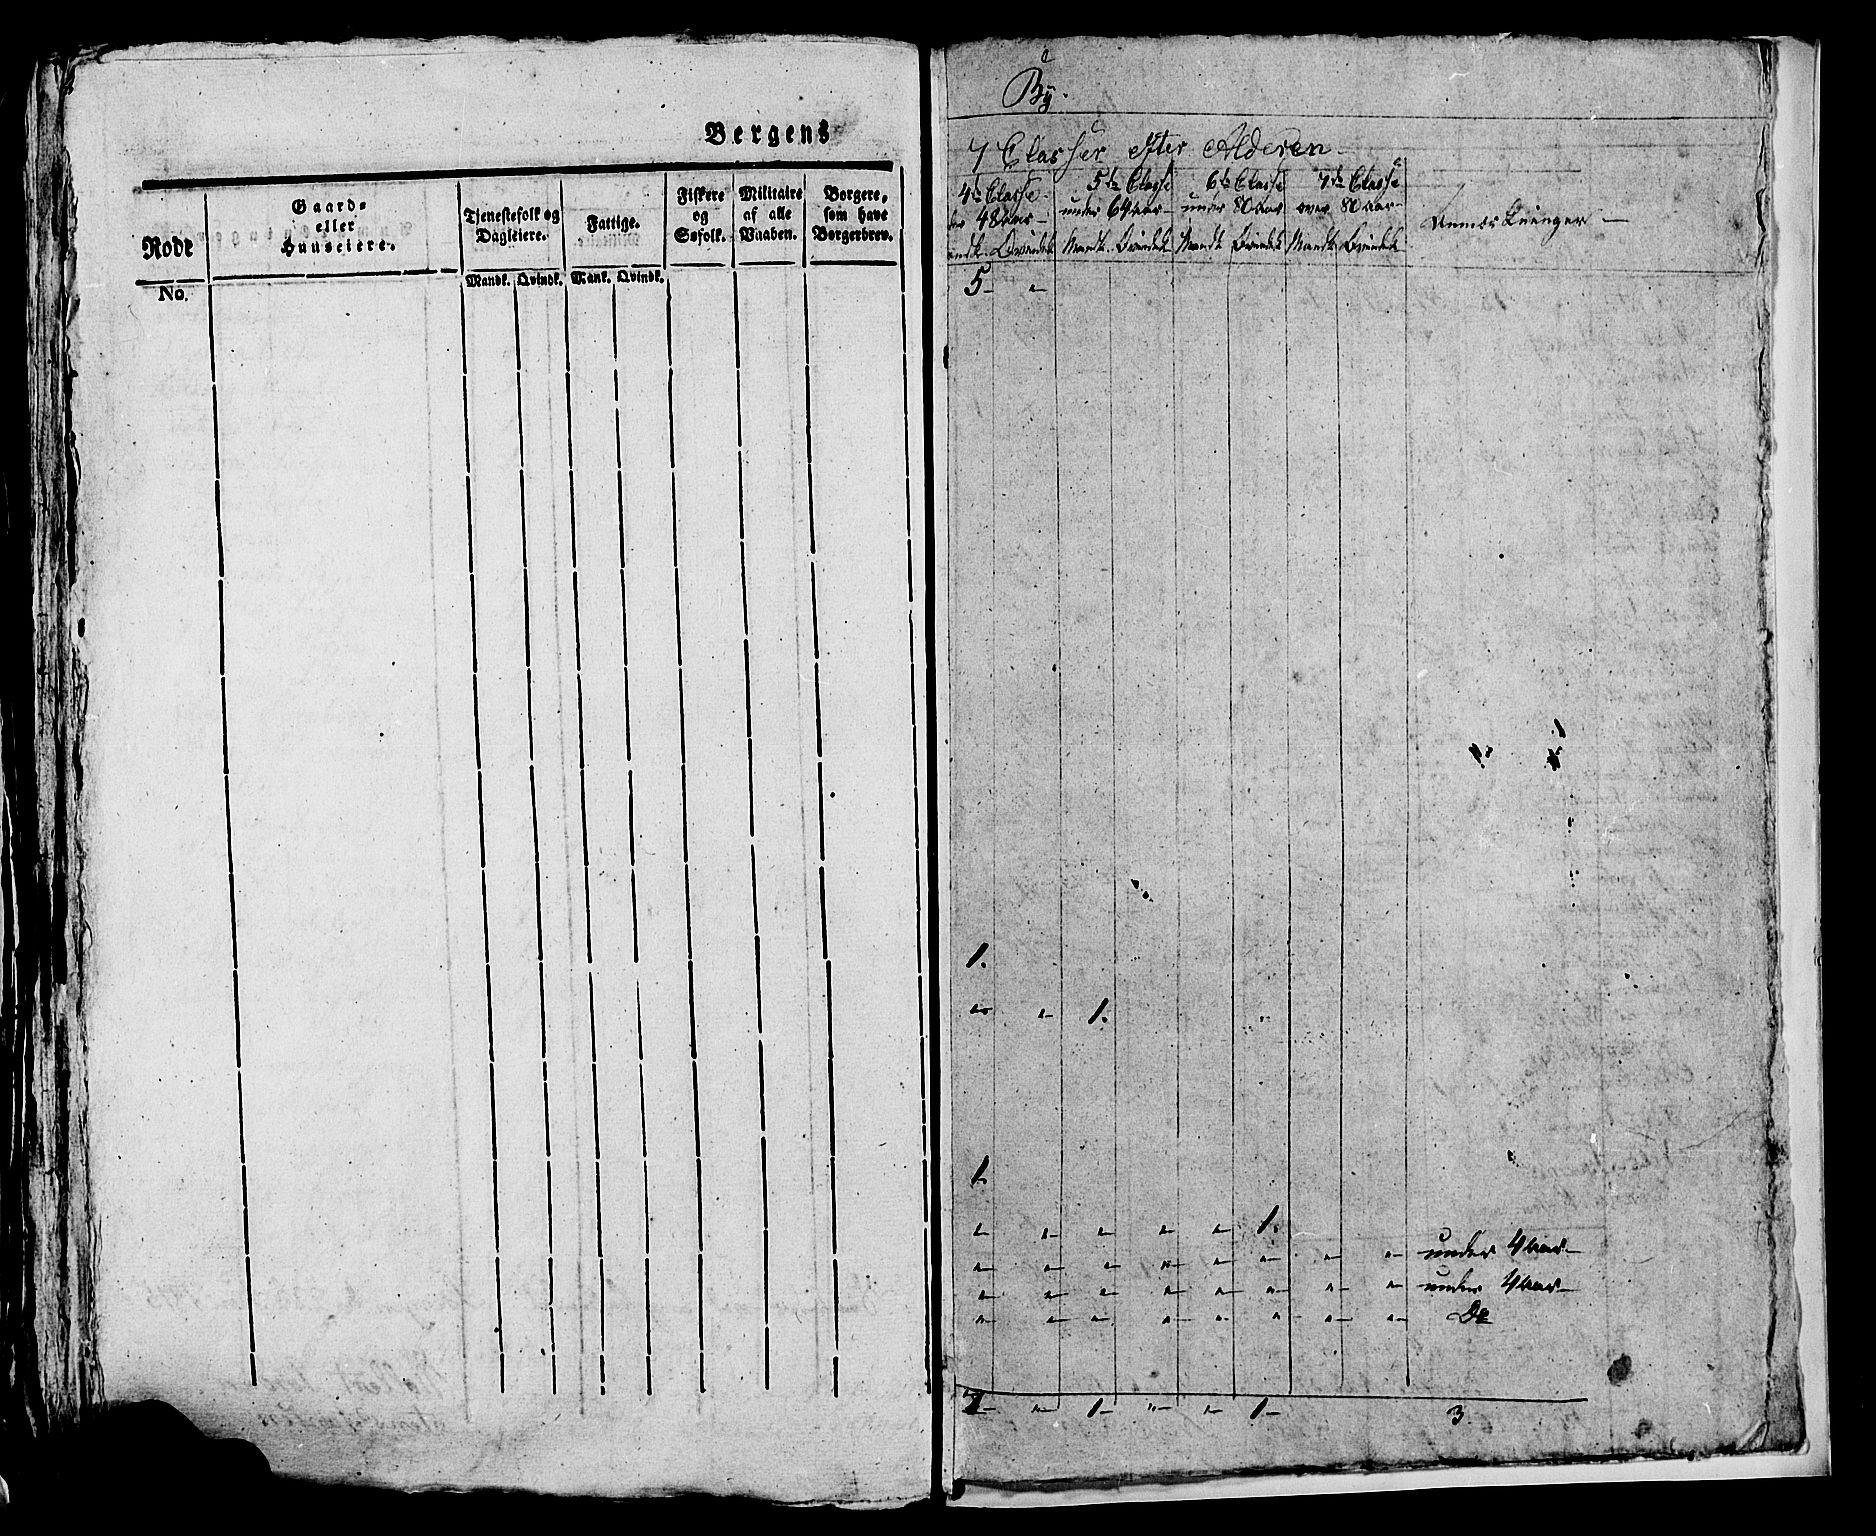 Bergens
Rode
Gaard-
eller
Huuseiere.
Tjenestefolk og
Dagleiere.
Fattige.
Fiskere
og
Søfolk.
Militaire
af alle
Vaaben.
Borgere,
som have
Borgerbrev.
No.
Mandk. Qvindk. Mank. Qvindk.
By.
7 Classer efter Alderen
4de Classe 5te Classe 6te Classe 7de Classe
48 aar under 64 aar under 80 aar over 80 aar
Qvindek Mandk. Qvindek Mandk Qvindek Mandk. Qvindek
Anmærkninger
5 "
1.
" " 1.
1.
" " " " " 1.
" " " " " " " " under 4 aar
" " " " " " " " under 4 aar
" " " " " " " " Do
7 " 1 " " 1 3